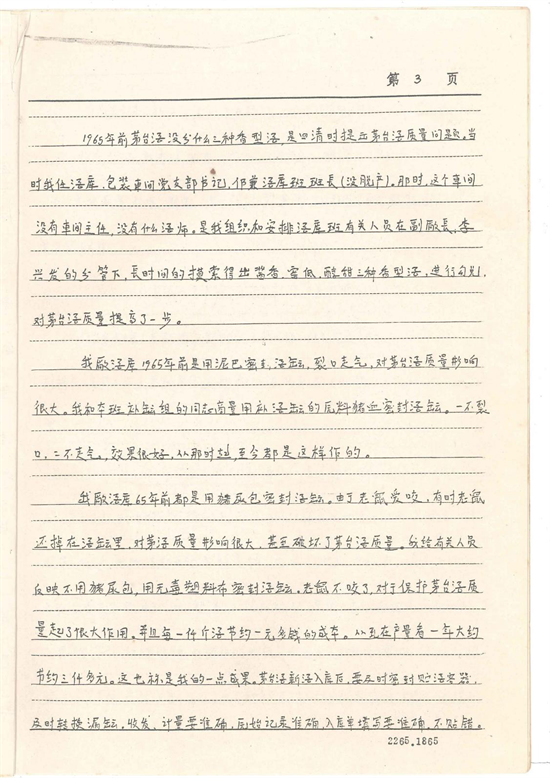 第 3 页
1965年前茅台酒没分什么三种香型酒,是四清时提出茅台酒质量问题。当
时我任酒库、包装车间党支部书记,仍兼酒库班班长(没脱产)。那时,这个车间
没有车间主任,没有什么酒师。是我组织和安排酒库班有关人员在副厰长、李
兴发的分管下,長时间的摸索得出酱香、窖底、醇甜三种香型酒,进行勾兑,
对茅台酒质量提高了一步。
我厰酒库1965年前是用泥巴密封酒缸,裂口走气,对茅台酒质量影响
很大。我和本班补缸组的同志商量用补酒缸的原料猪血密封酒缸。一不裂
口,二不走气,效果很好,从那时起,至今都是这样作的。
我厰酒库65年前都是用猪尿包密封酒缸。由于老鼠爱咬,有时老鼠
还掉在酒缸里,对茅酒质量影响很大,甚至破坏了茅台酒质量。我给有关人员
反映不用猪尿包,用无毒塑料布密封酒缸。老鼠不咬了,对于保护茅台酒质
量起了很大作用。并且每一仟斤酒节约一元多钱的成本。从现在产量看一年大约
节约三仟多元。这也祘是我的一点成果。茅台酒新酒入库后,要及时密封贮酒容器,
及时转换漏缸。收发、计量要准确,原始记录准确,入库单填写要准确,不贴错。
2265.1865